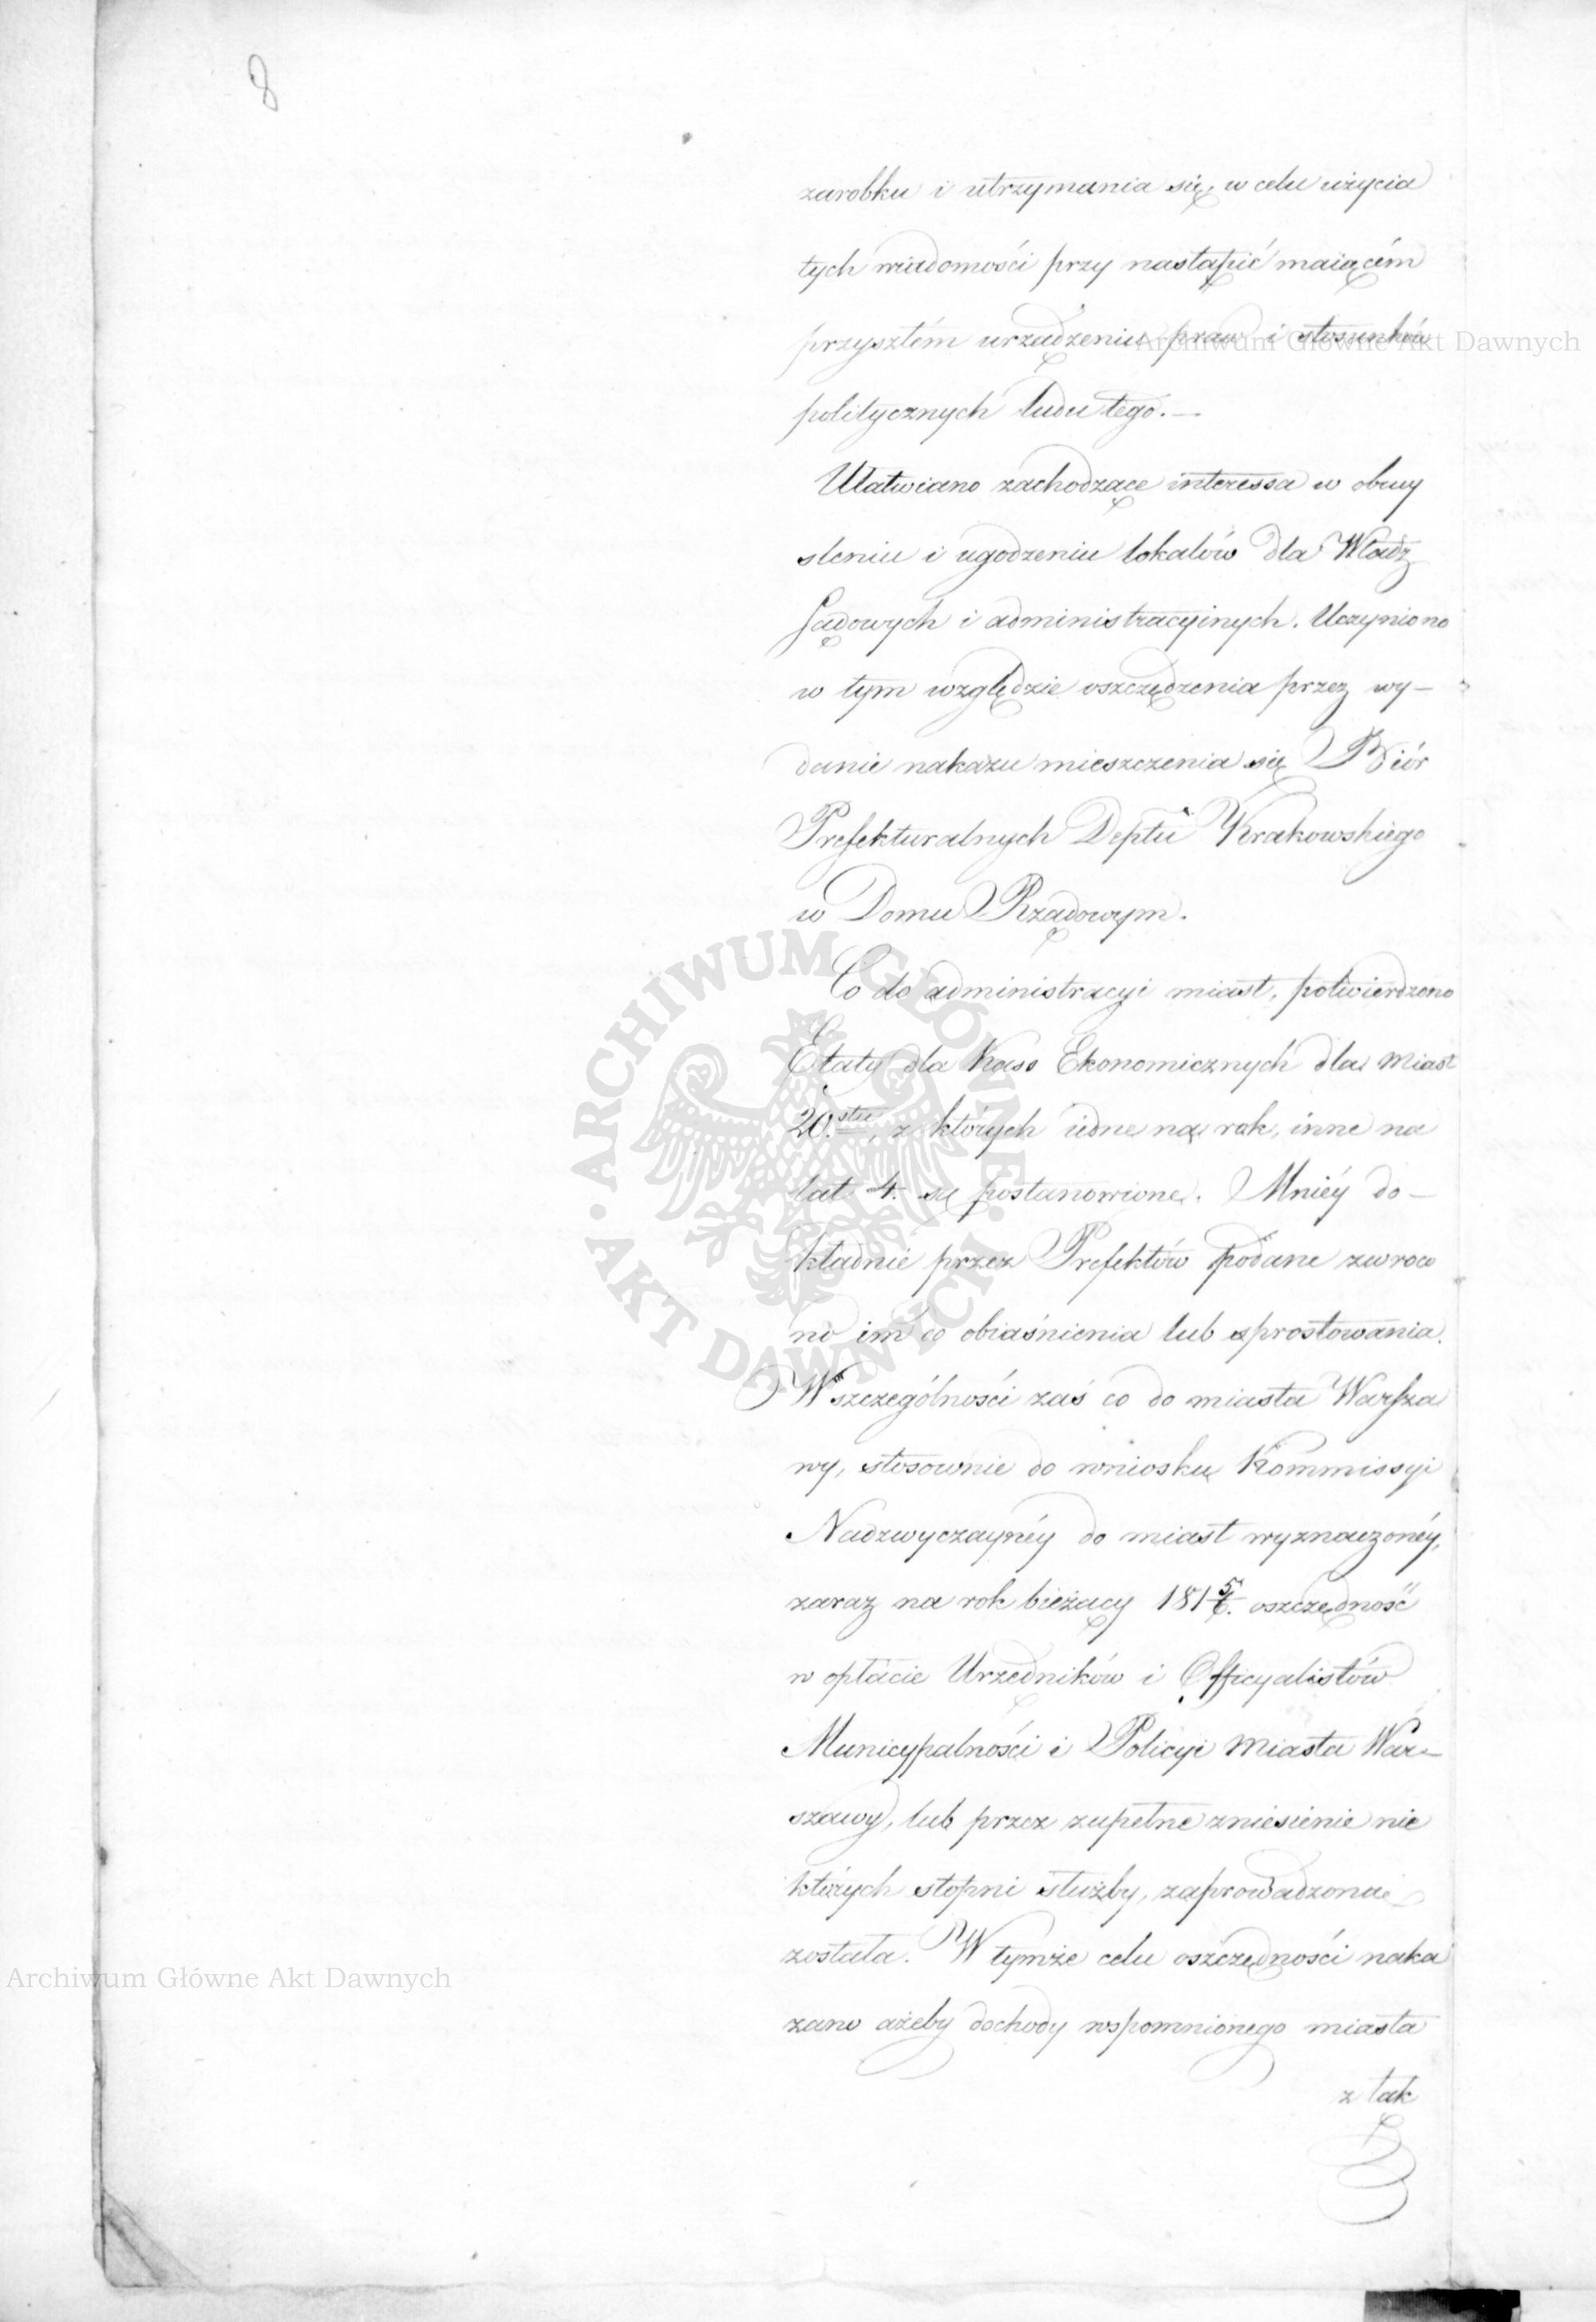 8
zarobku i utrzymania się, w celu użycia
tych wiadomości przy nastąpić maiącém
przyszłém urządzeniu praw i stosunków
politycznych ludu tego.—
Ułatwiano zachodzące interessa w obmy
śleniu i ugodzeniu lokalów dla Władz
Sądowych i administracyinych. Uczyniono
w tym względzie oszczędzenia przez wy–
danie nakazu mieszczenia się Biór
Prefekturalnych Deptu Krakowskiego
w Domu Rządowym.
Co do administracyi miast, potwierdzono
Etaty dla Kass Ekonomicznych dla miast
20.stu, z których iedne na rok, inne na
lat 4. są postanowione. Mniéy do–
kładnie przez Prefektów podane zwroco
no im do obiaśnienia lub sprostowania.
W szczególności zaś co do miasta Warsza
wy, stosownie do wniosku Kommissyi
Nadzwyczaynéy do miast wyznaczonéy,
zaraz na rok bieżący 181 5/6. oszczędność
w opłacie Urzędników i Officyalistów
Municypalności i Policyi miasta War–
szawy, lub przez zupełne zniesienie nie
których stopni służby, zaprowadzona
została. W tymże celu oszczędności naka
zano ażeby dochody wspomnionego miasta
z tak
Archiwum Główne Akt Dawnych
Archiwum Główne Akt Dawnych
ARCHIWUM GŁÓWNE · AKT DAWNYCH ·